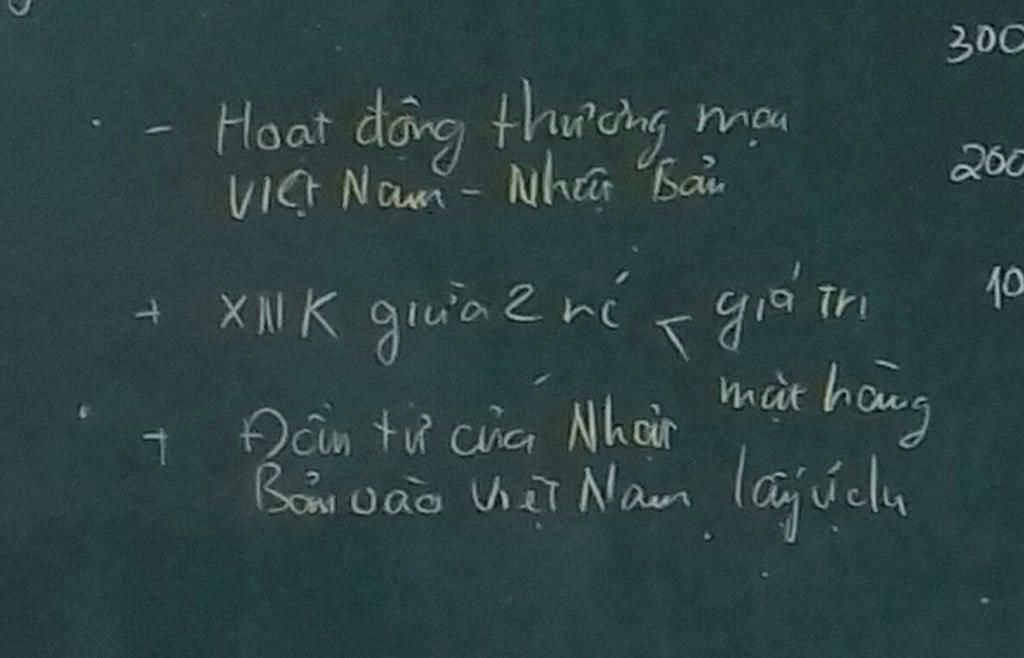 - Hoạt động thương mại
Việt Nam - Nhật Bản
+ XNK giữa 2 nc < giá trị
mặt hàng
+ Đầu tư của Nhật
Bản vào Việt Nam lấy ví dụ
300
200
10